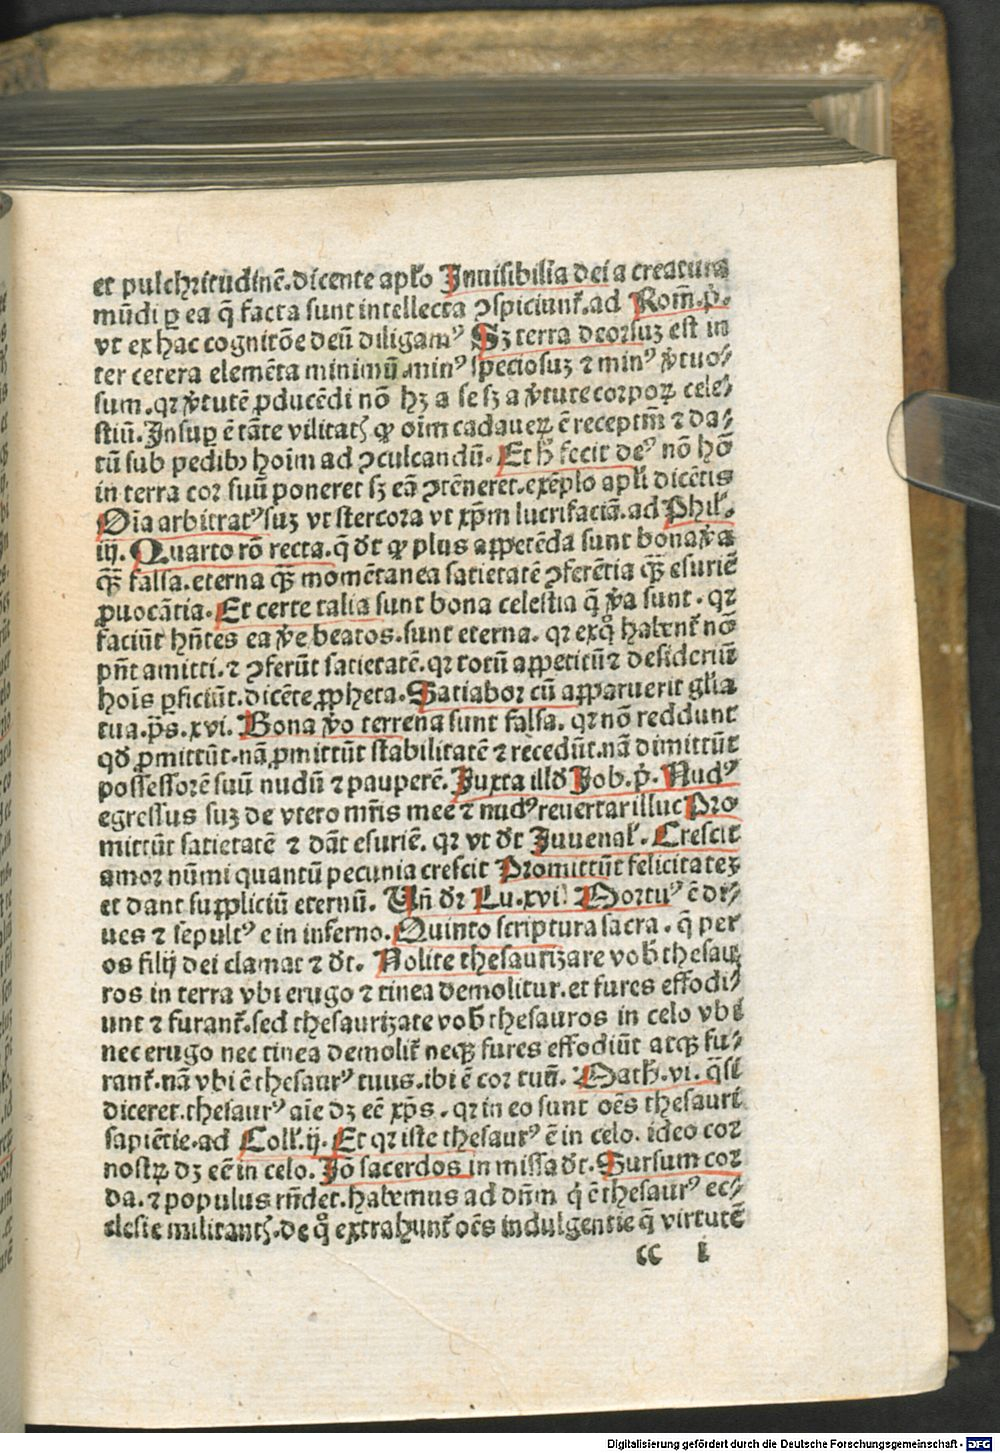 et pulchritudinē.dicente apl'o Inuisibilia dei a creatura
mūdi ꝑ ea q̄ facta sunt intellecta ꝯspiciunt᷑.ad Rom̄.p̊.
vt ex hac cognitōe deū diligamꝰ Sꝫ terra deorsuꝫ est in
ter cetera elemēta minimū.minꝰ speciosuꝫ ⁊ minꝰ v̓tuo⸗
sum.qꝛ v̓tutē ꝓducēdi nō hꝫ a se sꝫ a v̓tute corpoꝝ cele⸗
stiū.Insuꝑ ē tāte vilitatꝭ ꝙ oīm cadaueꝝ ē receptm̄ ⁊ da⸗
tū sub pedibꝰ hoīm ad ꝯculcandū. Et h̓ fecit deꝰ nō hō
in terra cor suū poneret sꝫ eā ꝯtēneret.exēplo apl'i dicētis
Oīa arbitratꝰ suꝫ vt stercora vt xp̄m lucrifaciā.ad Phil'.
iij. Quarto rō recta.q̄ dt̄ ꝙ plus appetēda sunt bona v̓a
q̄ꝫ falsa.eterna q̄ꝫ momētanea satietatē ꝯferētia q̄ꝫ esuriē
ꝓuocātia. Et certe talia sunt bona celestia q̄ v̓a sunt. qꝛ
faciūt hn̄tes ea v̓e beatos.sunt eterna. qꝛ exq̊ habent᷑ nō
pn̄t amitti.⁊ ꝯferūt satietatē.qꝛ totū appetitū ⁊ desideriū
hoīs ꝑficiūt.dicēte ꝓpheta. Satiabor cū apparuerit gl'ia
tua.p̄s.xvi. Bona v̓o terrena sunt falsa. qꝛ nō reddunt
qd̄ ꝓmittūt.nā ꝓmittūt stabilitatē ⁊ recedūt.nā dimittūt
possessorē suū nudū ⁊ pauperē. Iuxta illd̄ Job.p̊. Nudꝰ
egressus suꝫ de vtero mr̄is mee ⁊ nudꝰ reuertar illuc Pro
mittūt satietatē ⁊ dāt esuriē. qꝛ vt dt̄ Juuenal'. Crescit
amor nūmi quantū pecunia crescit Promittūt felicitateꝫ
et dant suppliciū eternū. Vn̄ dꝛ Lu.xvi. Mortuꝰ ē di⸗
ues ⁊ sepultꝰ e in inferno. Quinto scriptura sacra. q̄ per
os filij dei clamat ⁊ dt̄. Nolite thesaurizare vob̓ thesau
ros in terra vbi erugo ⁊ tinea demolitur.et fures effodi⸗
unt ⁊ furant᷑.sed thesaurizate vob̓ thesauros in celo vbi
nec erugo nec tinea demolit᷑ neqꝫ fures effodiūt atqꝫ fu⸗
rant᷑.nā vbi ē thesaurꝰ tuus.ibi ē cor tuū. Math̓.vi. q̄si
diceret.thesaurꝰ aīe dꝫ eē xp̄s. qꝛ in eo sunt oēs thesauri
sapiētie.ad Coll'.ij. Et qꝛ iste thesaurꝰ ē in celo. ideo cor
nostꝝ dꝫ eē in celo. Jō sacerdos in missa dt̄. Sursum cor
da.⁊ populus rn̄det.habemus ad dn̄m q̇ ē thesaurꝰ ec⸗
clesie militantꝭ.de q̊ extrahunt᷑ oēs indulgentie q̄ virtutē
cc i
Digitalisierung gefördert durch die Deutsche Forschungsgemeinschaft - DFG